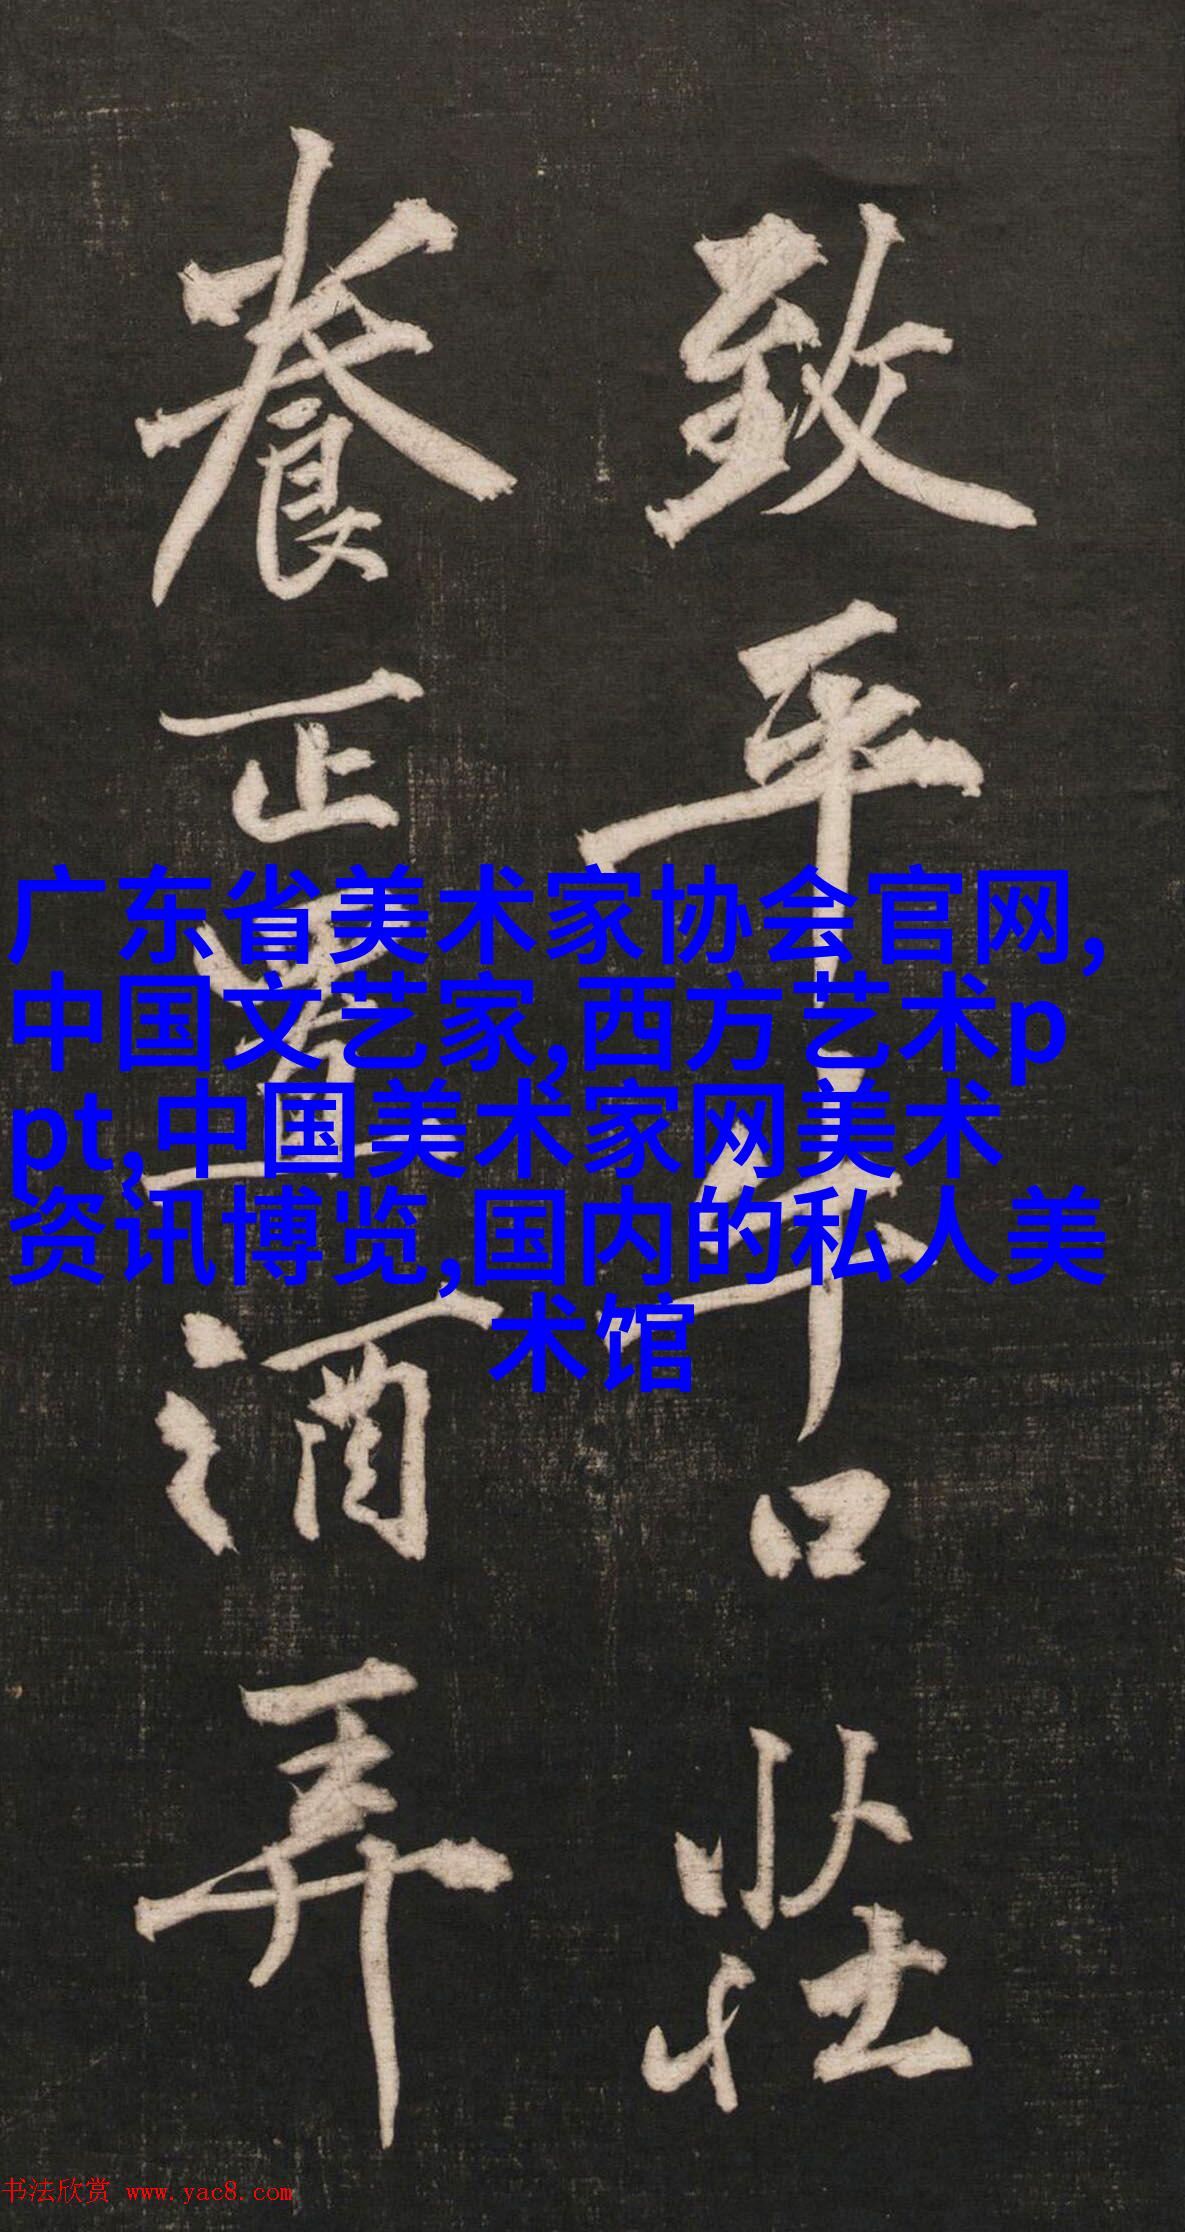 致平牛口莊
養正置酒弄
广东省美术家协会官网,
中国文艺家,西方艺术p
pt,中国美术家网美术
资讯博览,国内的私人美
术馆
书法欣赏 www.yac8.com